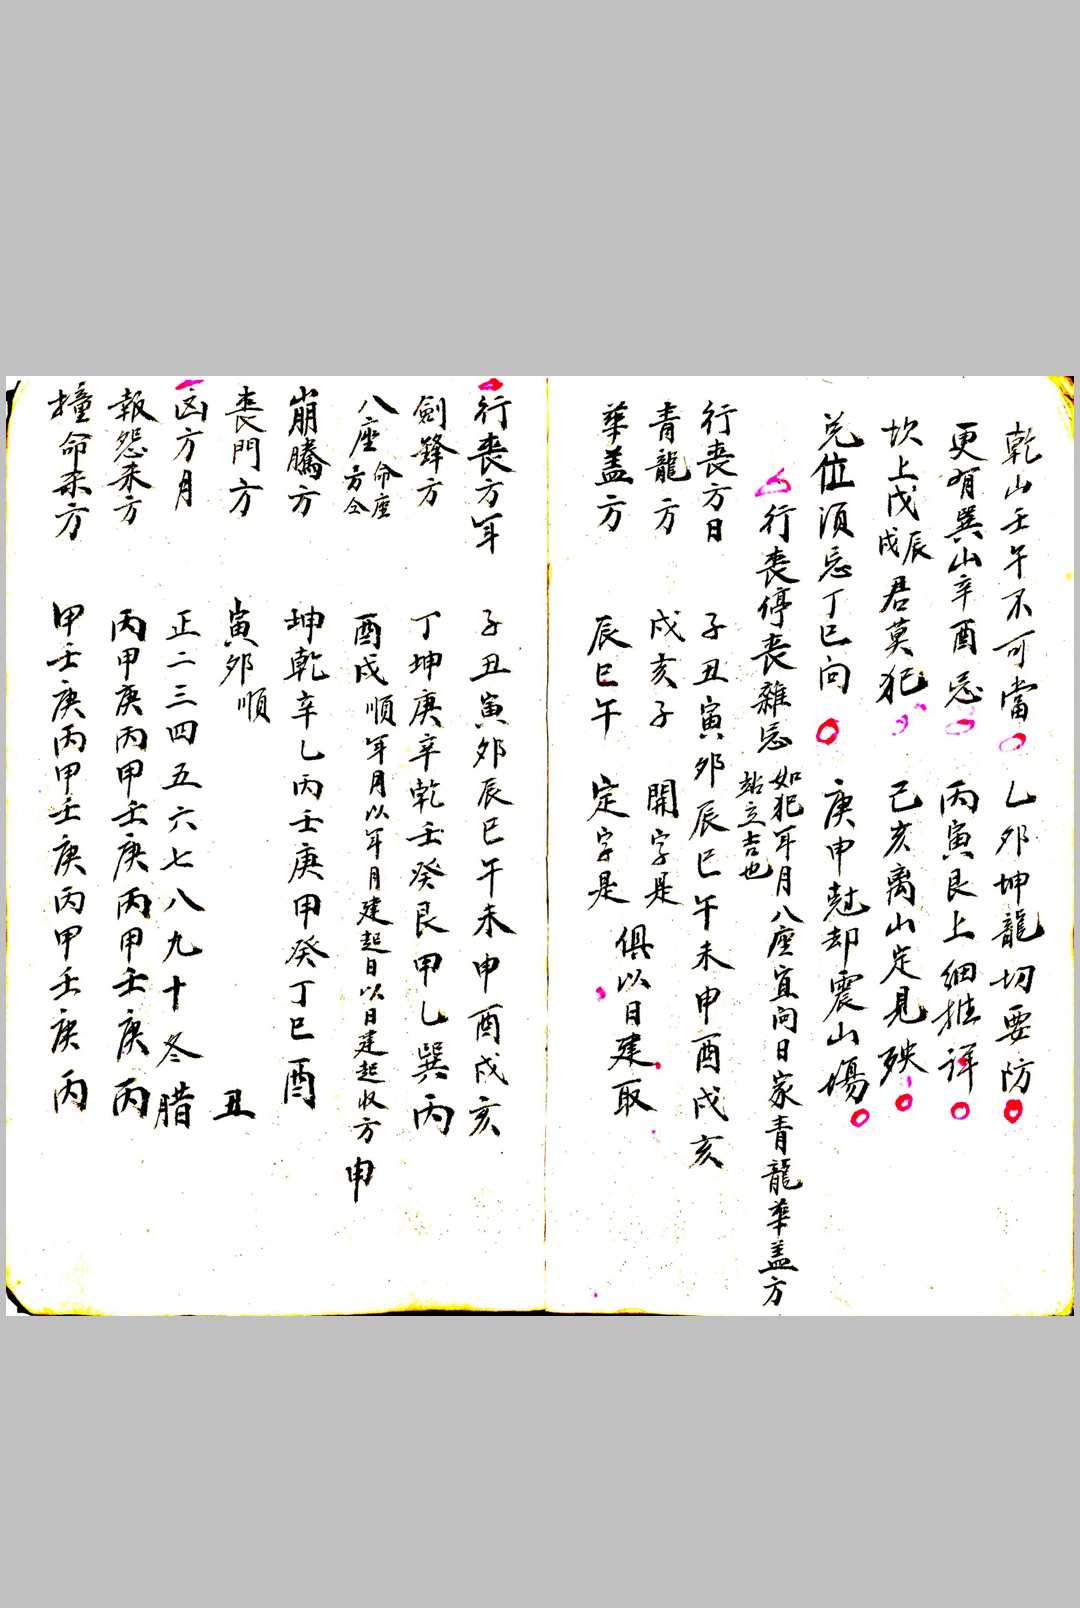 乾山壬午不可當　乙卯坤龍切要防
更有巽山辛酉忌　丙寅艮上細推詳
坎上戊辰戌君莫犯　己亥离山定見殃
兌位須忌丁巳向　庚申尅却震山場
行喪停喪雜忌　如犯年月八座宜向日家青龍華盖方
站立吉也
行喪方日　子丑寅卯辰巳午未申酉戌亥
青龍方　戌亥子　開字是
華盖方　辰巳午　定字是
俱以日建取
行喪方年　子丑寅卯辰巳午未申酉戌亥
劍鋒方　丁坤庚辛乾壬癸艮甲乙巽丙
八座方仝命座　酉戌順年月以年月建起日以日建起收方申
崩騰方　坤乾辛乙丙壬庚甲癸丁巳酉
喪門方　寅卯順丑
凶方月　正二三四五六七八九十冬腊
報怨来方　丙甲庚丙甲壬庚丙甲壬庚丙
撞命来方　甲壬庚丙甲壬庚丙甲壬庚丙